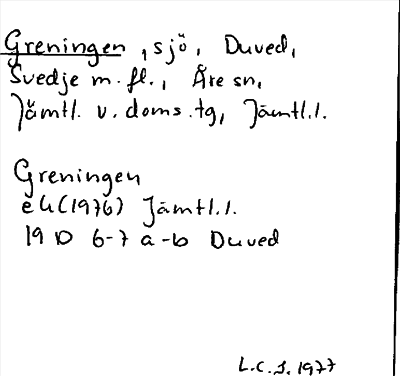 Greningen, sjö, Duved,
Svedje m. fl., Åre sn,
Jämtl. v. doms. tg, Jämtl. l.
Greningen
ek (1976) Jämtl. l.
19 D 6-7 a-b Duved
L.C.S. 1977